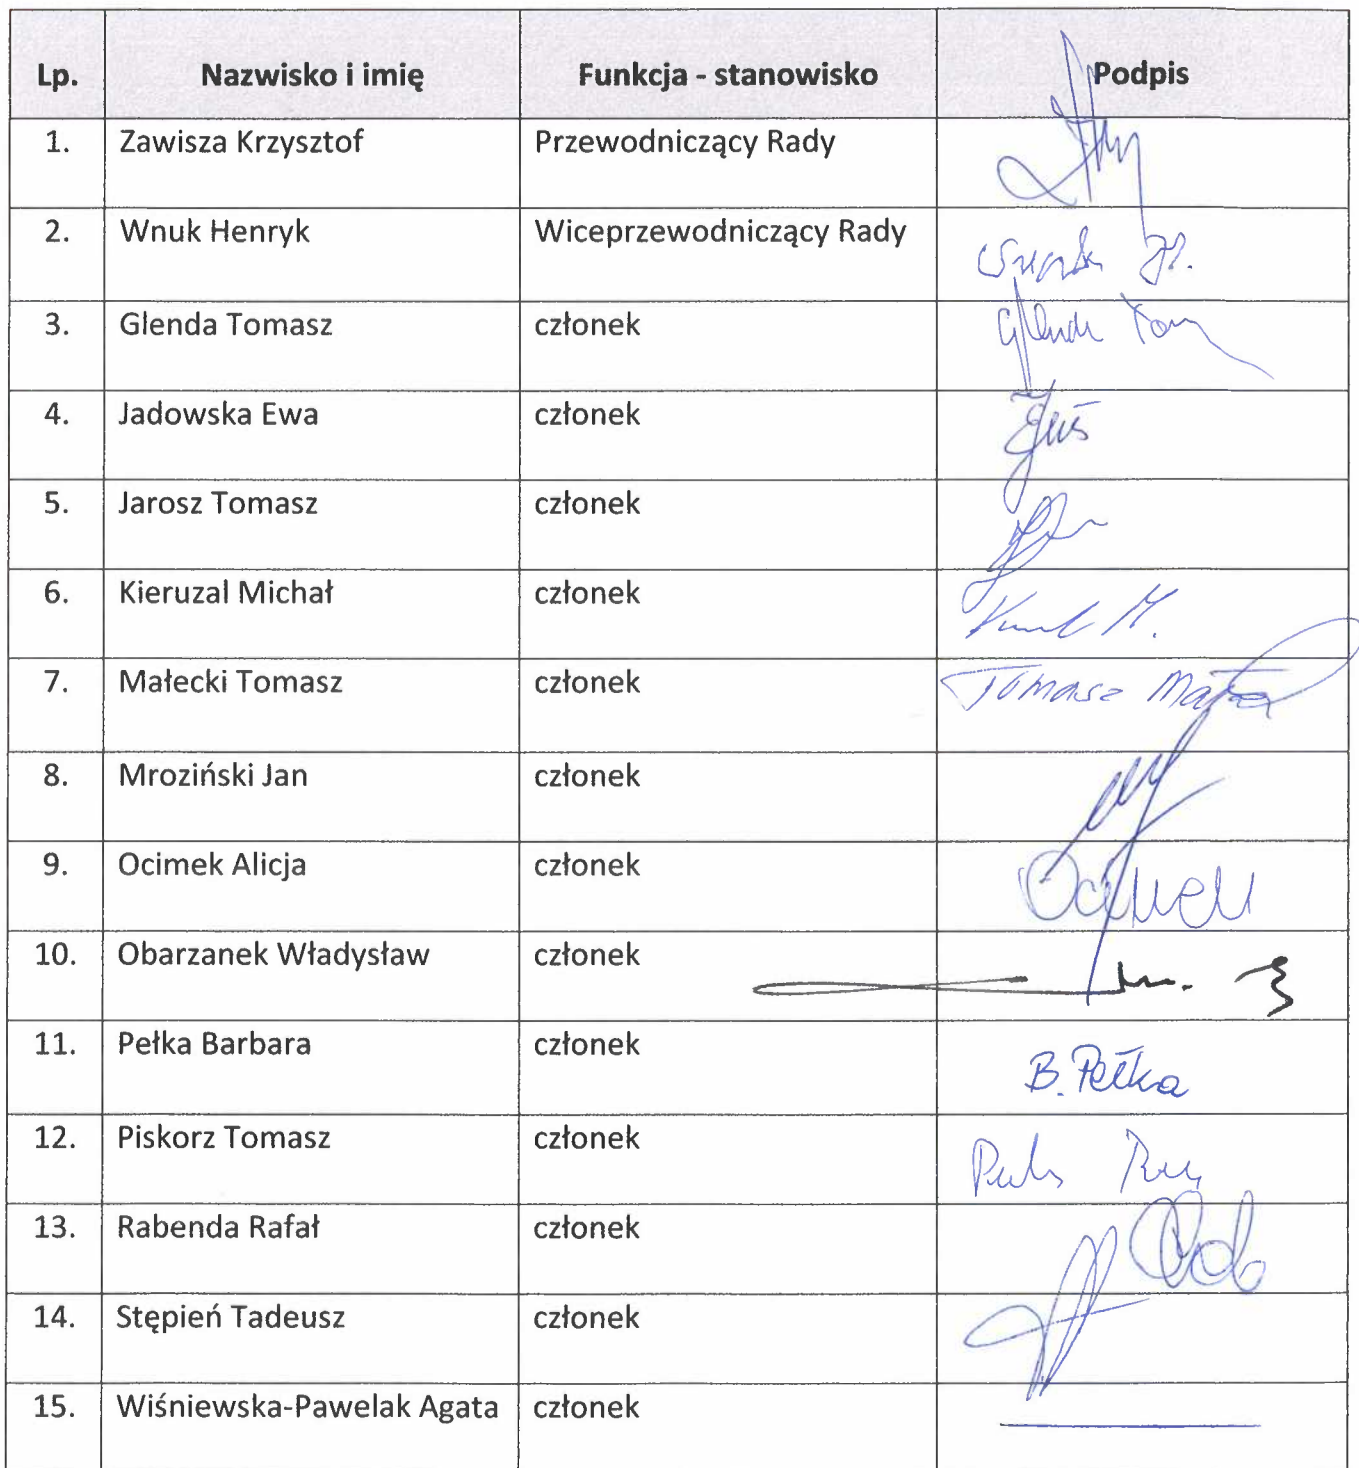 Lp. Nazwisko i imię Funkcja - stanowisko Podpis
1. Zawisza Krzysztof Przewodniczący Rady
2. Wnuk Henryk Wiceprzewodniczący Rady
3. Glenda Tomasz członek
4. Jadowska Ewa członek
5. Jarosz Tomasz członek
6. Kieruzal Michał członek
7. Małecki Tomasz członek Tomasz
8. Mroziński Jan członek
9. Ocimek Alicja członek Ocimek
10. Obarzanek Władysław członek
11. Pełka Barbara członek B. Pełka
12. Piskorz Tomasz członek
13. Rabenda Rafał członek
14. Stępień Tadeusz członek
15. Wiśniewska-Pawelak Agata członek